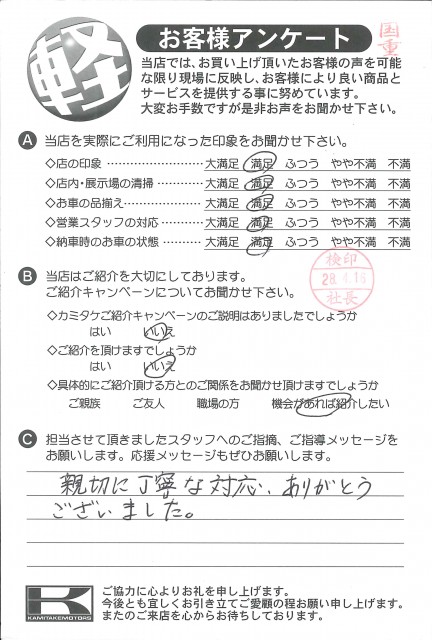 軽
お客様アンケート
国重
当店では、お買い上げ頂いたお客様の声を可能
な限り現場に反映し、お客様により良い商品と
サービスを提供する事に努めています。
大変お手数ですが是非お声をお聞かせ下さい。
A 当店を実際にご利用になった印象をお聞かせ下さい。
◇店の印象 ………………… 大満足 満足 ふつう やや不満 不満
◇店内・展示場の清掃………… 大満足 満足 ふつう やや不満 不満
◇お車の品揃え……………… 大満足 満足 ふつう やや不満 不満
◇営業スタッフの対応………… 大満足 満足 ふつう やや不満 不満
◇納車時のお車の状態………… 大満足 満足 ふつう やや不満 不満
B 当店はご紹介を大切にしております。
ご紹介キャンペーンについてお聞かせ下さい。
検印
28.4.16
社長
◇カミタケご紹介キャンペーンのご説明はありましたでしょうか
はい いいえ
◇ご紹介を頂けますでしょうか
はい いいえ
◇具体的にご紹介頂ける方とのご関係をお聞かせ頂けますでしょうか
ご親族 ご友人 職場の方 機会があれば紹介したい
C 担当させて頂きましたスタッフへのご指摘、ご指導メッセージを
お願いします。応援メッセージもぜひお願いします。
親切に丁寧な対応、ありがとう
ございました。
K
KAMITAKEMOTORS
ご協力に心よりお礼を申し上げます。
今後とも宜しくお引き立てご愛顧の程お願い申し上げます。
またのご来店を心からお待ちしております。